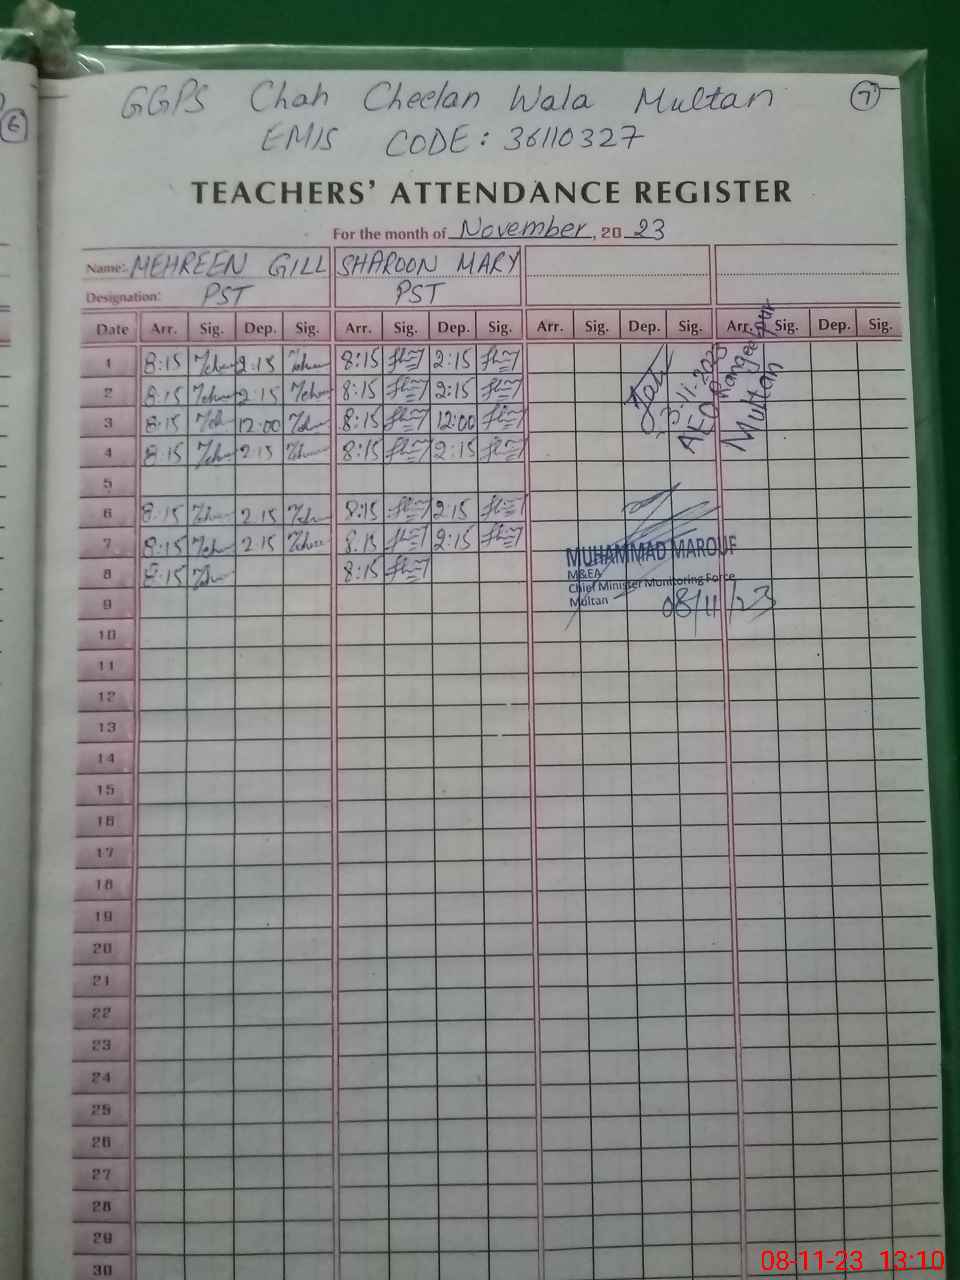 GGPS Chah Cheelan Wala Multan 7
6
EMIS CODE: 36110327
TEACHERS' ATTENDANCE REGISTER
For the month of November, 20 23
Name:- MEHREEN GILL SHAROON MARY
Designation: PST PST
Date Arr. Sig. Dep. Sig. Arr. Sig. Dep. Sig. Arr. Sig. Dep. Sig. Arr. Sig. Dep. Sig.
1 8:15 2:15 8:15 2:15
2 8:15 2:15 8:15 2:15
3 8:15 12:00 8:15 12:00
4 8:15 2:15 8:15 2:15
5
6 8:15 2:15 8:15 2:15
7 8:15 2:15 8:15 2:15
8 8:15 8:15
9
10
11
12
13
14
15
16
17
18
19
20
21
22
23
24
25
26
27
28
29
30
3-11-2023
AEO Rangeelpur
Multan
MUHAMMAD MAROUF
M&EA
Chief Minister Monitoring Force
Multan
08/11/23
08-11-23 13:10